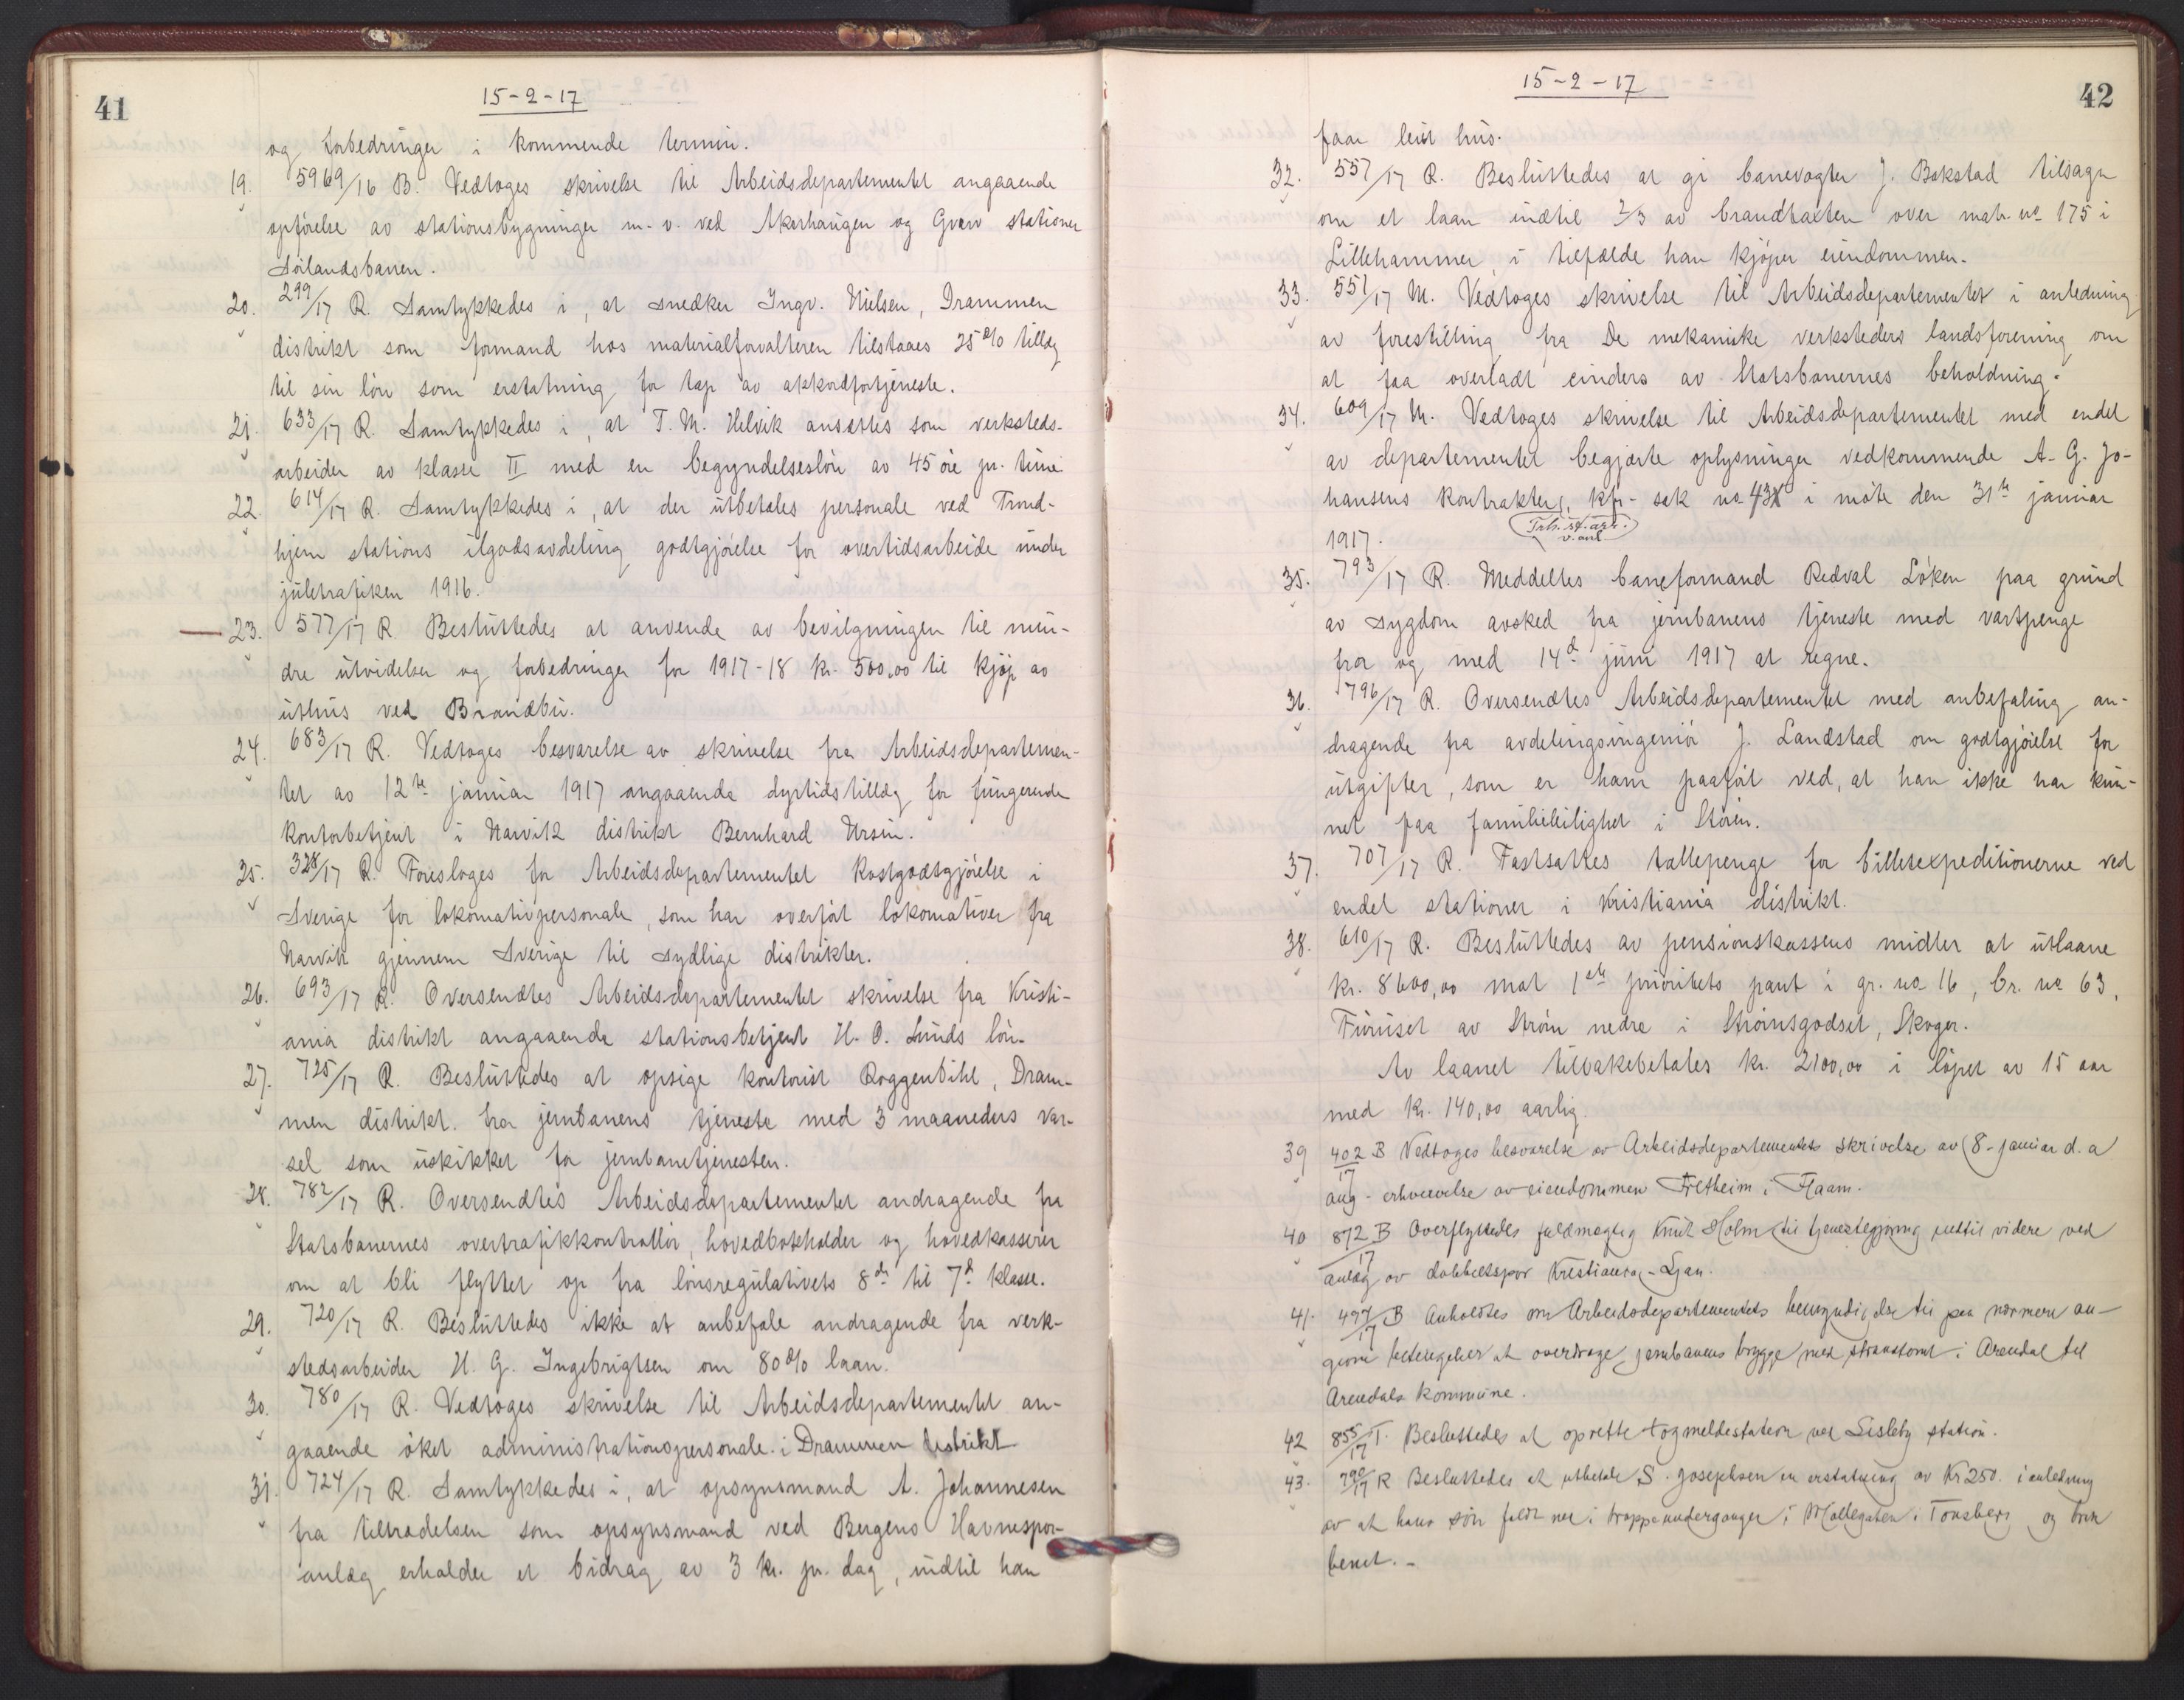 41
15-2-17
og forbedringer i kommende termin.
19. 5969/16 B. Vedtoges skrivelse til Arbeidsdepartementet angaaende
opførelse av stationsbygninger m.v. ved Akerhaugen og Gvarv stationer
Sørlandsbanen.
20. 299/17 R. Samtykkedes i, at snedker Ingv. Nielsen, Drammen
distrikt som formand hos materialforvalteren tilstaaes 25% tillæg
til sin løn som erstatning for tap av akkordfortjeneste.
21. 633/17 R. Samtykkedes i, at T. M. Helvik ansættes som verksteds-
arbeider av klasse II med en begyndelsesløn av 45 øre pr. time
22. 614/17 R. Samtykkedes i, at der utbetales personale ved Trond-
hjem stations ilgodsavdeling godtgjørelse for overtidsarbeide under
juletrafiken 1916.
23. 577/17 R. Besluttedes at anvende av bevilgningen til min-
dre utvidelser og forbedringer for 1917-18 kr. 500,00 til kjøp av
uthus ved Brandbu.
24. 683/17 R. Vedtoges besvarelse av skrivelse fra Arbeidsdepartemen-
tet av 12te januar 1917 angaaende dyrtidstillæg for fungerende
kontorbetjent i Narvik distrikt Bernhard Ursin.
25. 328/17 R. Foresloges for Arbeidsdepartementet kostgodtgjørelse i
Sverige for lokomotivpersonale, som har overført lokomotiver fra
Narvik gjennem Sverige til sydlige distrikter.
26. 693/17 R. Oversendtes Arbeidsdepartementet skrivelse fra Kristi-
ania distrikt angaaende stationsbetjent H. O. Lunds løn.
27. 725/17 R. Besluttedes at opsige kontorist Roggenbihl, Dram-
men distrikt. fra jernbanens tjeneste med 3 maaneders var-
sel som uskikket for jernbanetjenesten.
28. 782/17 R. Oversendtes Arbeidsdepartementet andragende fra
Statsbanernes overtrafikkontrollør, hovedbokholder og hovedkasserer
om at bli flyttet op fra lønsregulativets 8de til 7de klasse.
29. 720/17 R. Besluttedes ikke at anbefale andragende fra verk-
stedsarbeider H. G. Ingebrigtsen om 80% laan.
30. 780/17 R. Vedtoges skrivelse til Arbeidsdepartementet an-
gaaende øket administrationspersonale i Drammen distrikt
31. 724/17 R. Samtykkedes i, at opsynsmand A. Johannesen
fra tiltrædelsen som opsynsmand ved Bergens Havnespor-
anlæg erholder et bidrag av 3 kr. pr. dag, indtil han
42
15-2-17
faar leiet hus.
32. 557/17 R. Besluttedes at gi banevogter J. Bakstad tilsagn
om et laan indtil 2/3 av brandtaxten over matr. no 175 i
Lillehammer, i tilfælde han kjøper eiendommen.
33. 551/17 M. Vedtoges skrivelse til Arbeidsdepartementet i anledning
av forestilling fra De mekaniske verksteders landsforening om
at faa overladt cinders av Statsbanernes beholdning.
34. 609/17 M. Vedtoges skrivelse til Arbeidsdepartementet med endel
av departementet begjærte oplysninger vedkommende A. G. Jo-
hansens kontrakter, kfr. sak no 43 i møte den 31te januar
1917.
35. 793/17 R. Meddeltes baneformand Redval Løken paa grund
av sygdom avsked fra jernbanens tjeneste med vartpenge
fra og med 14de juni 1917 at regne.
36. 796/17 R. Oversendtes Arbeidsdepartementet med anbefaling an-
dragende fra avdelingsingeniør J. Landstad om godtgjørelse for
utgifter, som er ham paaført ved, at han ikke har kun-
net faa familieleilighet i Støren.
37. 707/17 R. Fastsattes tællepenge for billetexpeditionerne ved
endel stationer i Kristiania distrikt.
38. 610/17 R. Besluttedes av pensionskassens midler at utlaane
kr. 8600,00 mot 1ste prioritets pant i gr. no 16, br. no 63,
Furuset av Strøm nedre i Strømsgodset, Skoger.
Av laanet tilbakebetales kr. 2100,00 i løpet av 15 aar
med kr. 140,00 aarlig.
39 402/17 B Vedtoges besvarelse av Arbeidsdepartementets skrivelse av 8. januar d. a
ang. erhvervelse av eiendommen Fretheim i Flaam.
40 872/17 B Overflyttedes fuldmægtig Knut Holm til tjenestegjøring indtil videre ved
anlæg av dobbeltspor Kristiania-Ljan.
41. 497/17 B Anholdtes om Arbeidsdepartementets bemyndigelse til paa nærmere an-
givne betingelser at overdrage jernbanens brygge med strandtomt i Arendal til
Arendals kommune.
42 855/17 T. Besluttedes at oprette togmeldestation ved Lisleby station.
43. 790/17 R Besluttedes at utbetale S. Josephsen en erstatning av Kr 250. i anledning
av at hans søn faldt ned i trappeundergangen i Møllegaten i Tønsberg og brak
benet.-